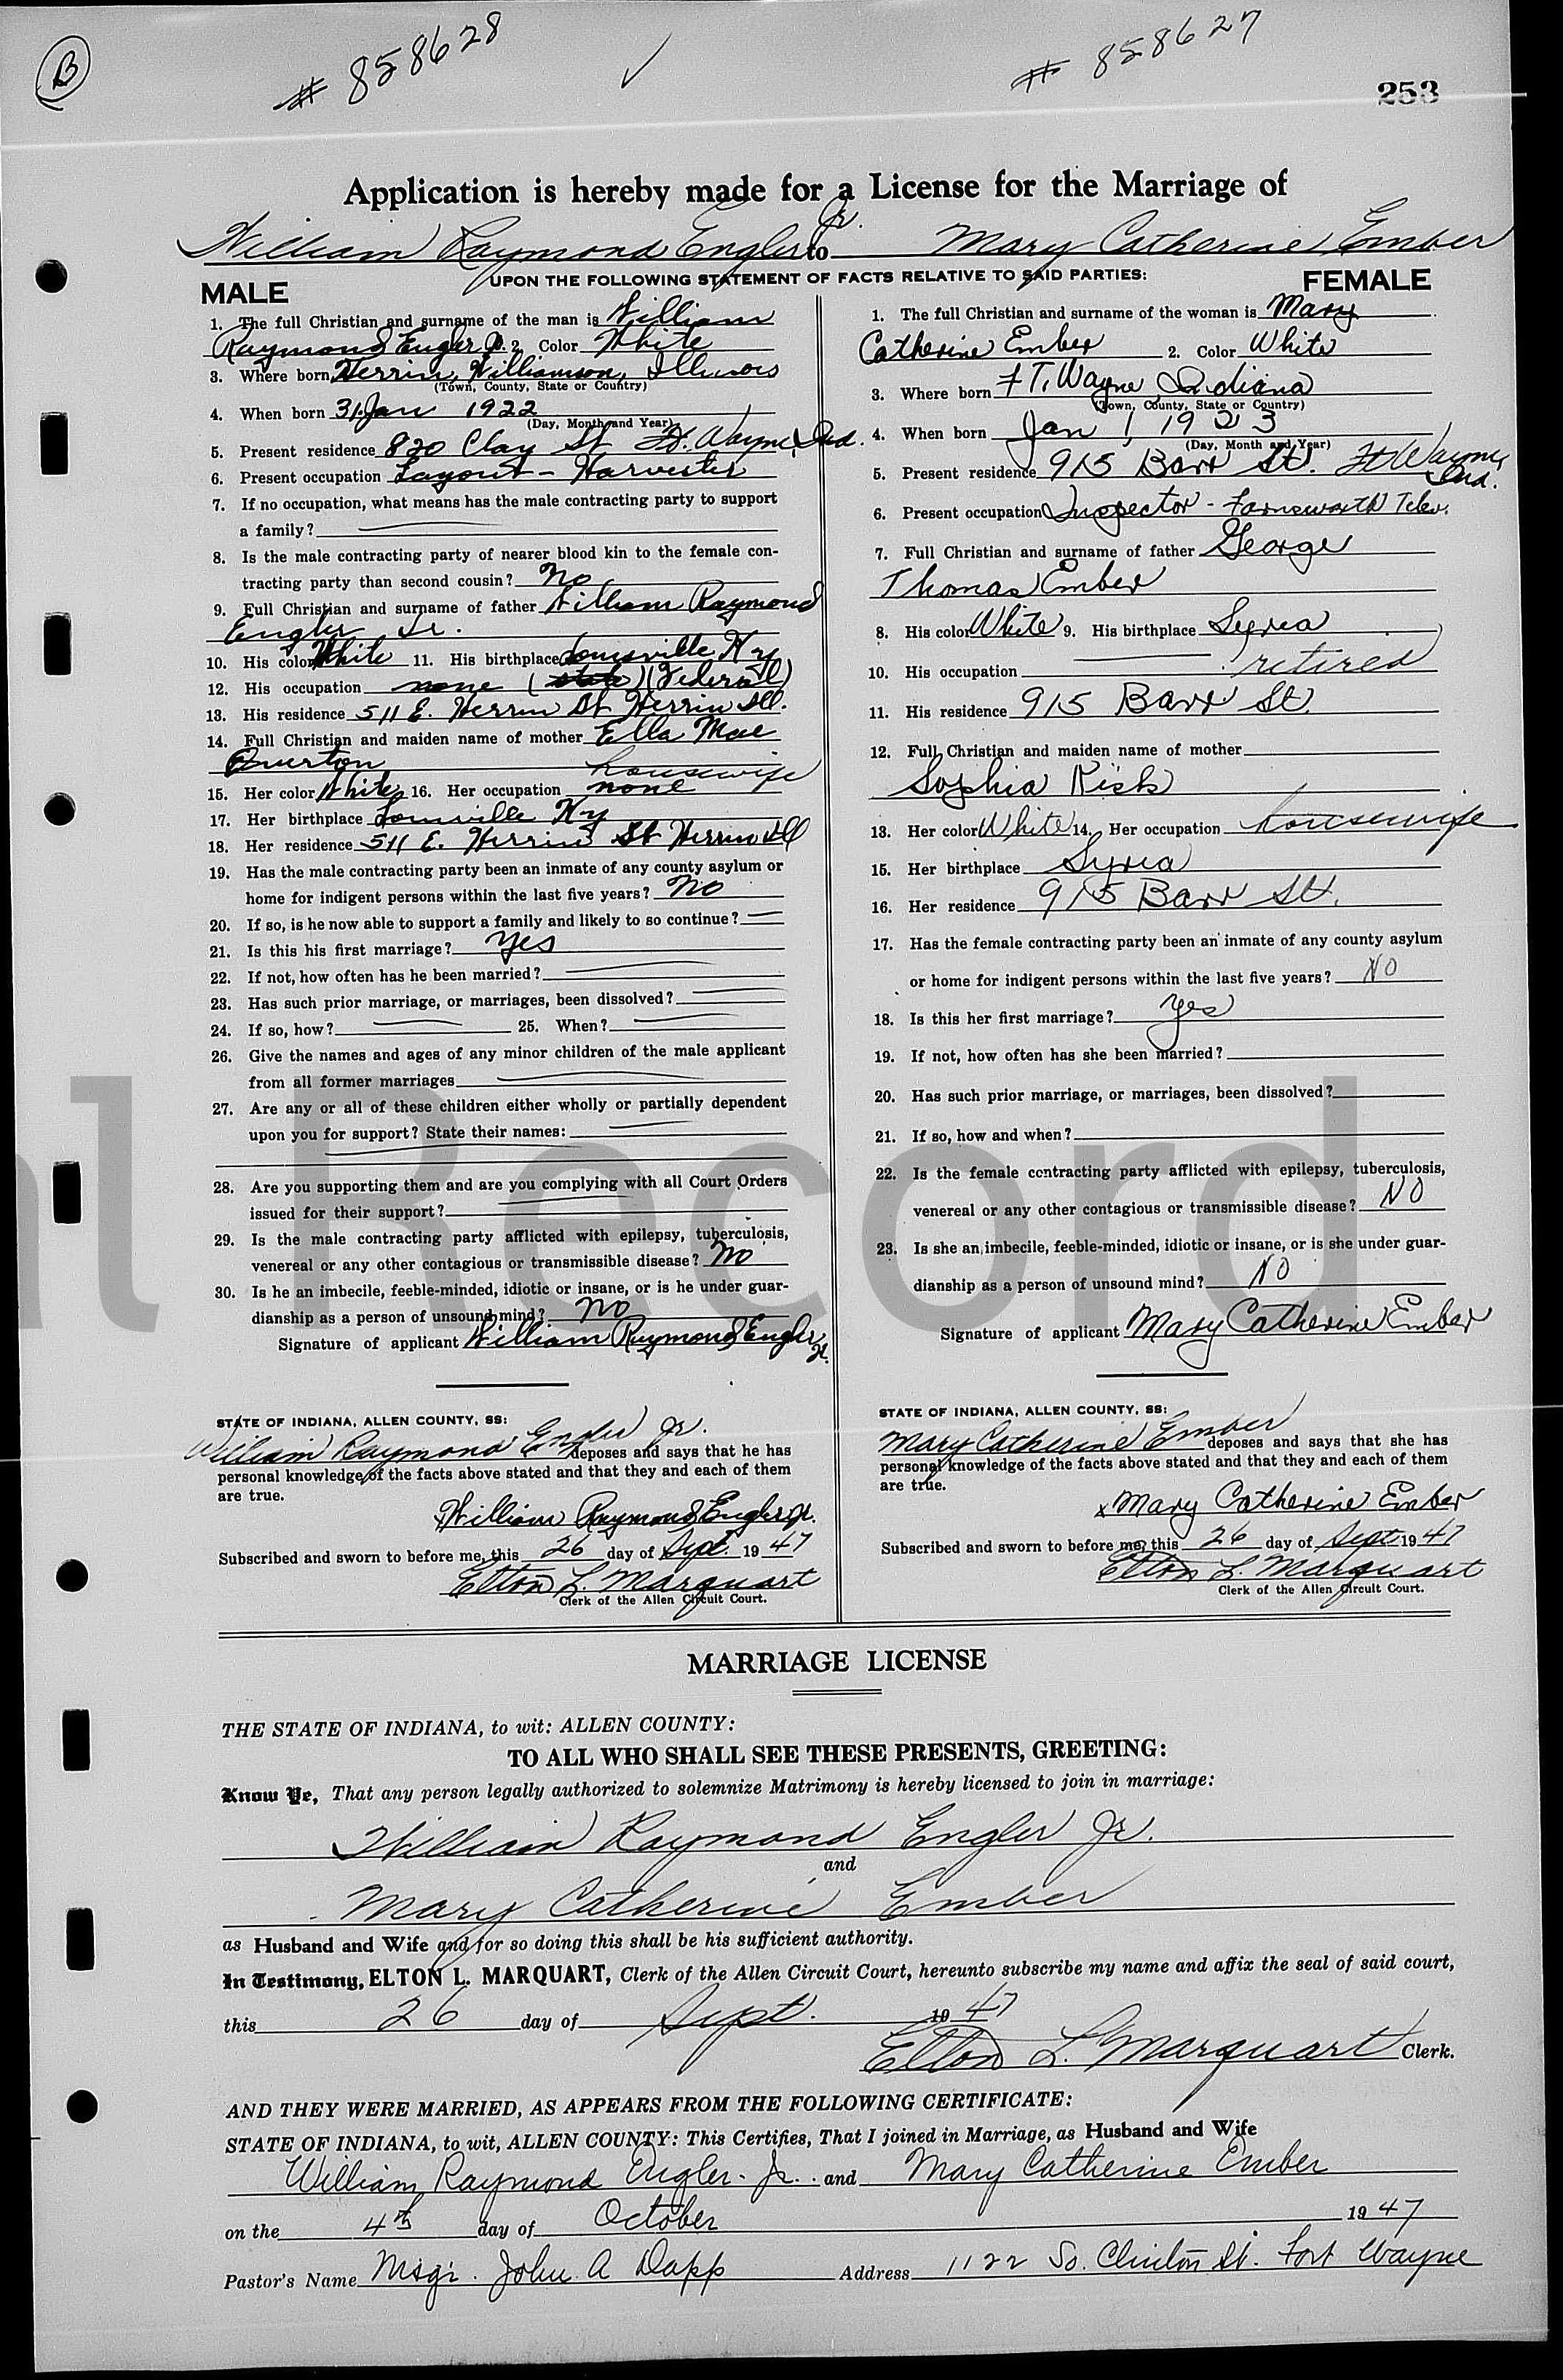 B
# 858628 ✓ # 858627
253
Application is hereby made for a License for the Marriage of
William Raymond Engler Jr. to Mary Catherine Ember
UPON THE FOLLOWING STATEMENT OF FACTS RELATIVE TO SAID PARTIES:
MALE
1. The full Christian and surname of the man is William
Raymond Engler Jr. 2. Color White
3. Where born Herrin, Williamson, Illinois
(Town, County, State or Country)
4. When born 31 Jan 1922
(Day, Month and Year)
5. Present residence 820 Clay St Ft. Wayne, Ind.
6. Present occupation Layout - Harvester
7. If no occupation, what means has the male contracting party to support
a family?
8. Is the male contracting party of nearer blood kin to the female con-
tracting party than second cousin? No
9. Full Christian and surname of father William Raymond
Engler Sr.
10. His color White 11. His birthplace Louisville Ky
12. His occupation none (state) (Federal)
13. His residence 511 E. Herrin St Herrin Ill.
14. Full Christian and maiden name of mother Ella Mae
housewife
15. Her color White 16. Her occupation none
17. Her birthplace Louisville Ky
18. Her residence 511 E. Herrin St Herrin Ill
19. Has the male contracting party been an inmate of any county asylum or
home for indigent persons within the last five years? No
20. If so, is he now able to support a family and likely to so continue?
21. Is this his first marriage? Yes
22. If not, how often has he been married?
23. Has such prior marriage, or marriages, been dissolved?
24. If so, how? 25. When?
26. Give the names and ages of any minor children of the male applicant
from all former marriages
27. Are any or all of these children either wholly or partially dependent
upon you for support? State their names:
28. Are you supporting them and are you complying with all Court Orders
issued for their support?
29. Is the male contracting party afflicted with epilepsy, tuberculosis,
venereal or any other contagious or transmissible disease? No
30. Is he an imbecile, feeble-minded, idiotic or insane, or is he under guar-
dianship as a person of unsound mind? No
Signature of applicant William Raymond Engler Jr.
STATE OF INDIANA, ALLEN COUNTY, SS:
William Raymond Engler Jr. deposes and says that he has
personal knowledge of the facts above stated and that they and each of them
are true.
William Raymond Engler Jr.
Subscribed and sworn to before me, this 26 day of Sept. 1947
Elton L. Marquart
Clerk of the Allen Circuit Court.
FEMALE
1. The full Christian and surname of the woman is Mary
Catherine Ember 2. Color White
3. Where born FT. Wayne Indiana
(Town, County, State or Country)
4. When born Jan 1, 1923
(Day, Month and Year)
5. Present residence 915 Barr St. Ft Wayne, Ind.
6. Present occupation Inspector - Farnsworth Telev.
7. Full Christian and surname of father George
Thomas Ember
8. His color White 9. His birthplace Syria
10. His occupation retired
11. His residence 915 Barr St.
12. Full Christian and maiden name of mother
Sophia Kish
13. Her color White 14. Her occupation housewife
15. Her birthplace Syria
16. Her residence 915 Barr St.
17. Has the female contracting party been an inmate of any county asylum
or home for indigent persons within the last five years? NO
18. Is this her first marriage? Yes
19. If not, how often has she been married?
20. Has such prior marriage, or marriages, been dissolved?
21. If so, how and when?
22. Is the female contracting party afflicted with epilepsy, tuberculosis,
venereal or any other contagious or transmissible disease? NO
23. Is she an imbecile, feeble-minded, idiotic or insane, or is she under guar-
dianship as a person of unsound mind? NO
Signature of applicant Mary Catherine Ember
STATE OF INDIANA, ALLEN COUNTY, SS:
Mary Catherine Ember deposes and says that she has
personal knowledge of the facts above stated and that they and each of them
are true.
x Mary Catherine Ember
Subscribed and sworn to before me, this 26 day of Sept 1947
Elton L. Marquart
Clerk of the Allen Circuit Court.
l Record
MARRIAGE LICENSE
THE STATE OF INDIANA, to wit: ALLEN COUNTY:
TO ALL WHO SHALL SEE THESE PRESENTS, GREETING:
Know Ye, That any person legally authorized to solemnize Matrimony is hereby licensed to join in marriage:
William Raymond Engler Jr.
and
Mary Catherine Ember
as Husband and Wife and for so doing this shall be his sufficient authority.
In Testimony, ELTON L. MARQUART, Clerk of the Allen Circuit Court, hereunto subscribe my name and affix the seal of said court,
this 26 day of Sept. 1947
Elton L. Marquart Clerk.
AND THEY WERE MARRIED, AS APPEARS FROM THE FOLLOWING CERTIFICATE:
STATE OF INDIANA, to wit, ALLEN COUNTY: This Certifies, That I joined in Marriage, as Husband and Wife
William Raymond Engler Jr. and Mary Catherine Ember
on the 4th day of October 1947
Pastor's Name Msgr. John A Dapp Address 1122 So. Clinton St. Fort Wayne